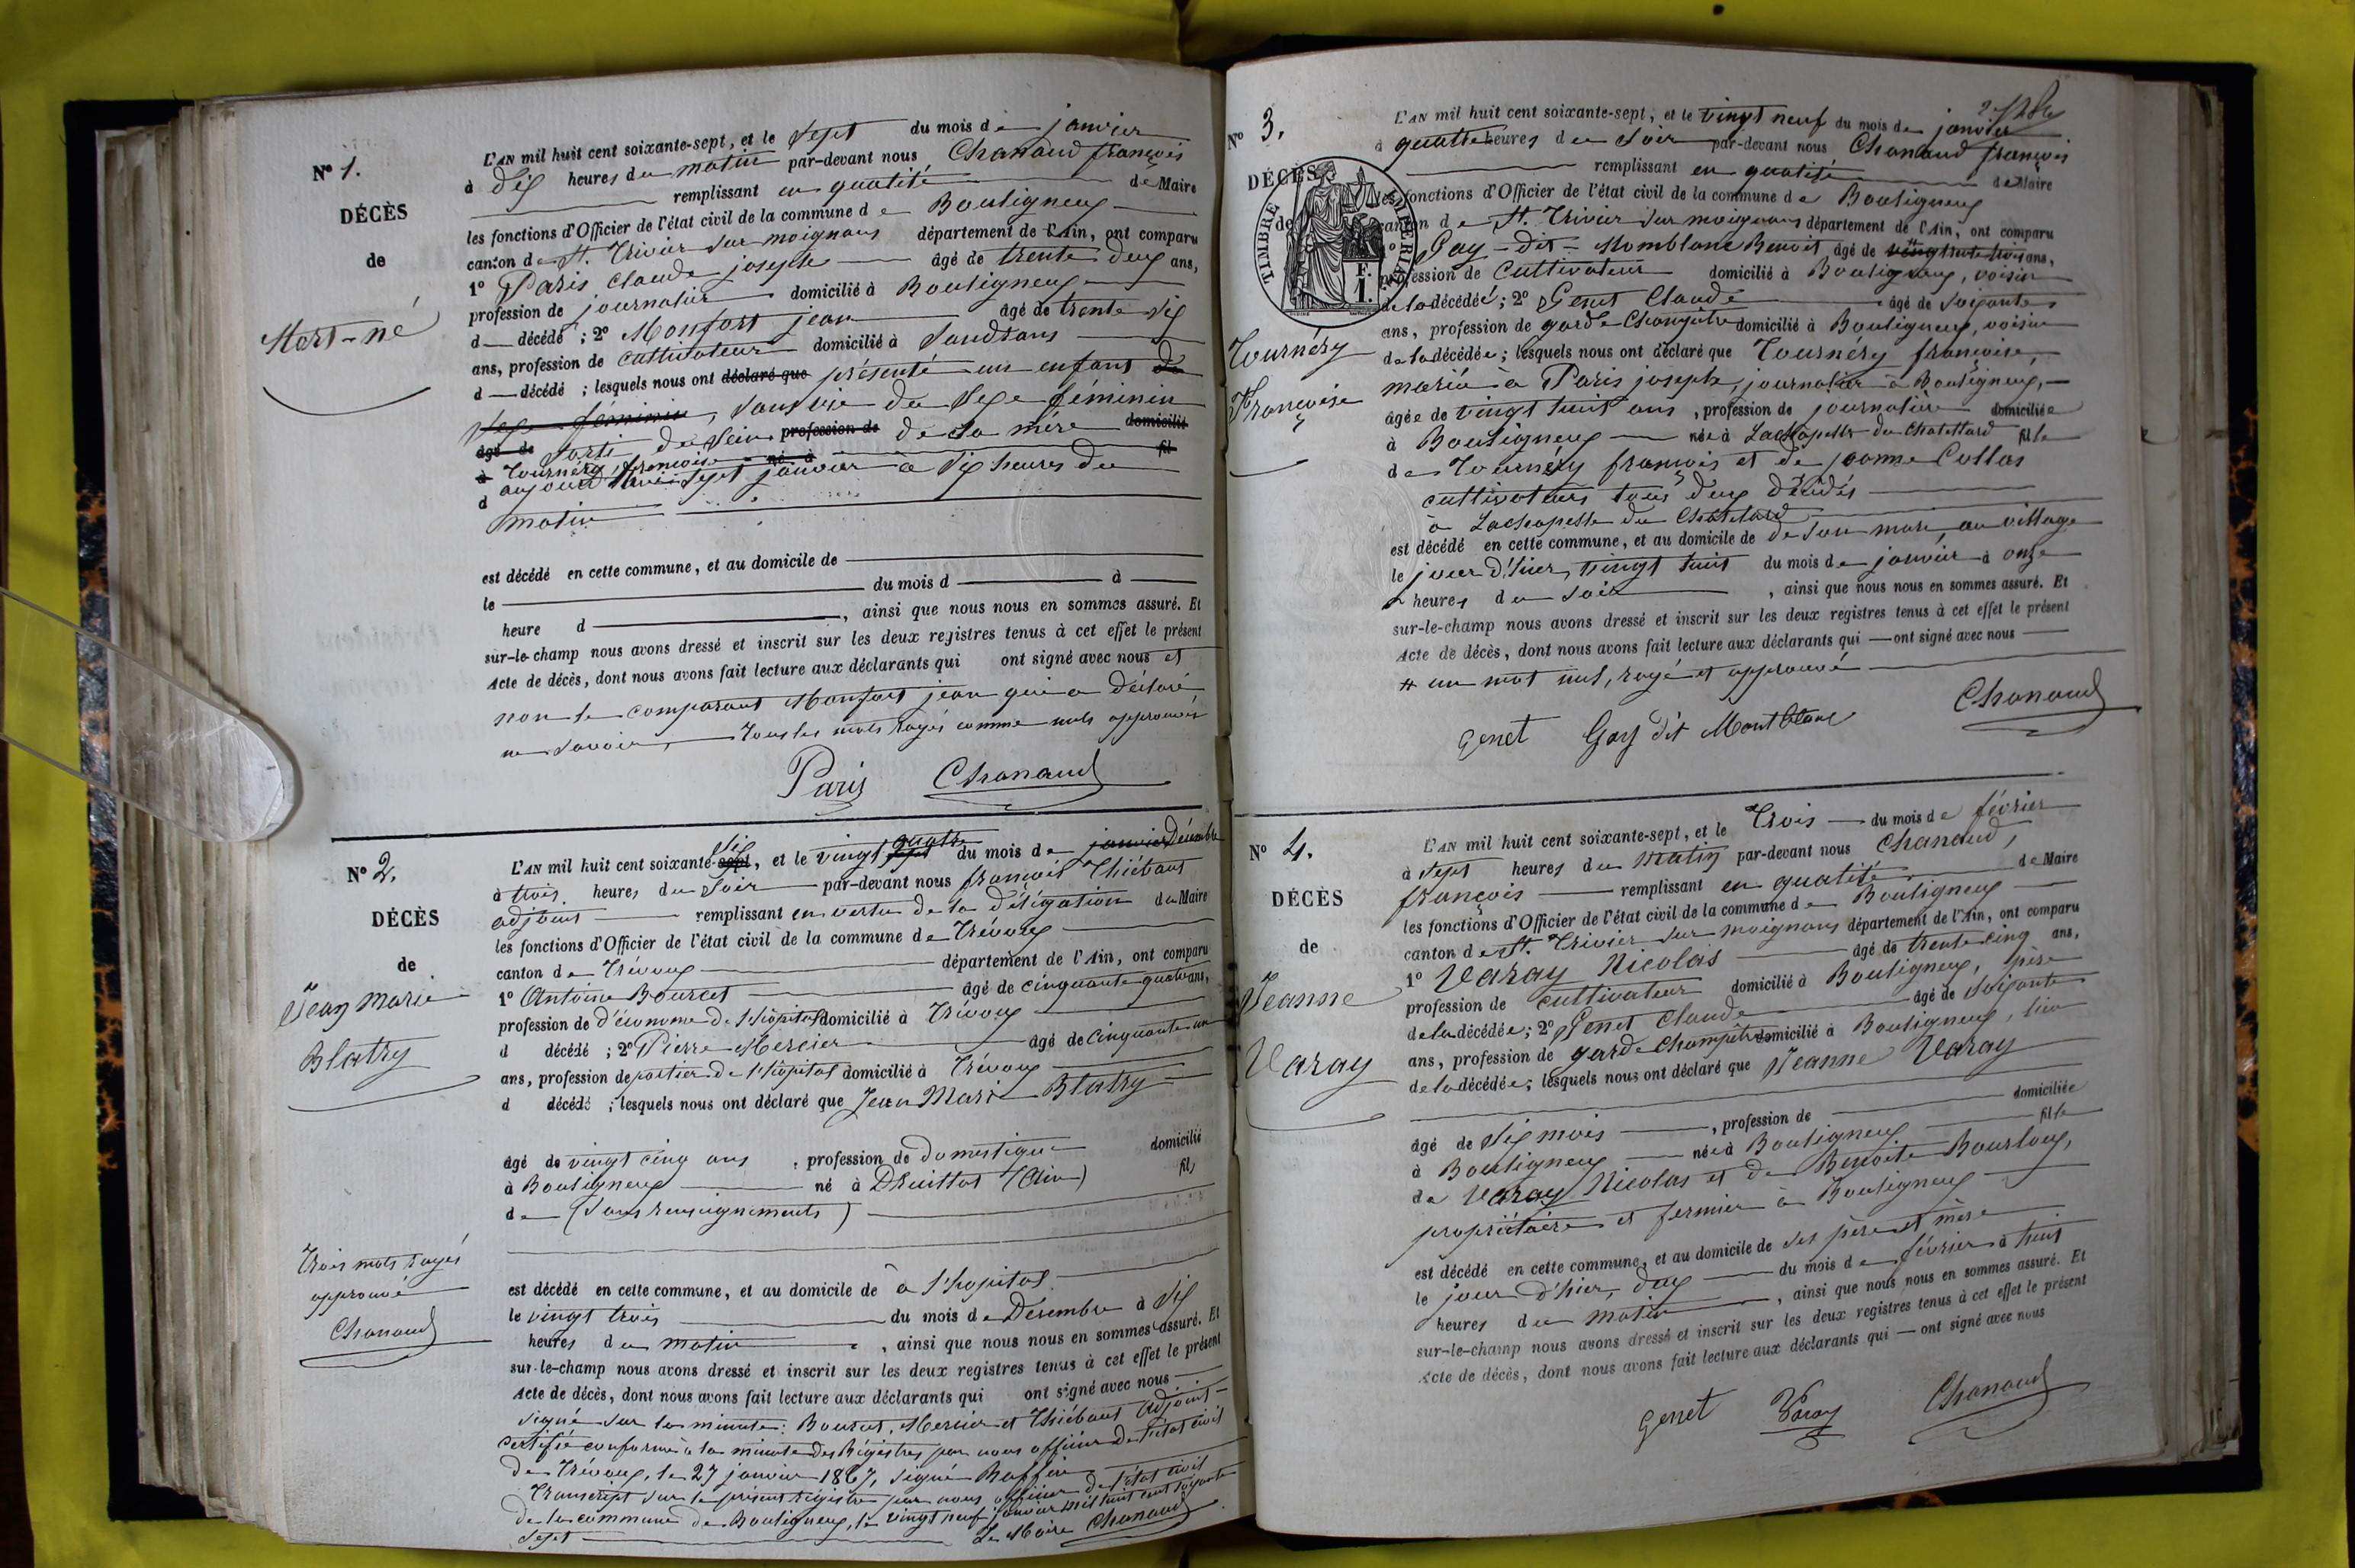 N° 1.
DÉCÈS
de
Mort-né
L'AN mil huit cent soixante-sept, et le sept du mois de janvier
à dix heures du matin par-devant nous Chanaud françois
remplissant en qualité de Maire
les fonctions d'Officier de l'état civil de la commune de Bouligneux
canton de St. Trivier sur moignans département de l'Ain, ont comparu
1° Paris Claude joseph âgé de trente deux ans,
profession de journalier domicilié à Bouligneux
d décédé ; 2° Monfort jean âgé de trente six
ans, profession de cultivateur domicilié à Sandrans
d décédé ; lesquels nous ont déclaré que présenté un enfant du
sexe féminin, sans vie du sexe féminin
âgé de sorti du sein profession de de la mère domicilié
à Tournéry françoise né à fil
d aujourd'hui sept janvier à six heures du
matin
est décédé en cette commune, et au domicile de
le du mois d à
heure d , ainsi que nous nous en sommes assuré. Et
sur-le-champ nous avons dressé et inscrit sur les deux registres tenus à cet effet le présent
Acte de décès, dont nous avons fait lecture aux déclarants qui ont signé avec nous et
non le comparant Monfort jean qui a déclaré
ne savoir, Tous les mots rayés comme nuls approuvés
Paris Chanaud
N° 2.
DÉCÈS
de
Jean Marie
Blatry
Trois mots rayés
approuvé
Chanaud
L'AN mil huit cent soixante-sept six, et le vingt sept quatre du mois de janvier Décembre
à trois heures du soir par-devant nous françois Thiébaut
adjoint remplissant en vertu de la délégation du Maire
les fonctions d'Officier de l'état civil de la commune de Trévoux
canton de Trévoux département de l'Ain, ont comparu
1° Antoine Bourcet âgé de cinquante quatre ans,
profession de d'économe de l'hôpital domicilié à Trévoux
d décédé ; 2° Pierre Mercier âgé de cinquante un
ans, profession de portier de l'hôpital domicilié à Trévoux
d décédé ; lesquels nous ont déclaré que Jean Marie Blatry
âgé de vingt cinq ans , profession de domestique domicilié
à Bouligneux né à Druillat (Ain) fils
de (Sans renseignements)
est décédé en cette commune, et au domicile de à l'hopital
le vingt trois du mois de Décembre à six
heures du matin , ainsi que nous nous en sommes assuré. Et
sur-le-champ nous avons dressé et inscrit sur les deux registres tenus à cet effet le présent
Acte de décès, dont nous avons fait lecture aux déclarants qui ont signé avec nous
signé sur la minute: Bourcet, Mercier et Thiébaut Adjoint
Certifié conforme à la minute des Régistres par nous officier de l'état civil
de Trévoux, le 27 janvier 1867, signé Raffin
Transcript sur le présent registre par nous officier de l'état civil
de la commune de Bouligneux, le vingt neuf janvier mil huit cent soixante
sept Le Maire Chanaud
N° 3.
DÉCÈS
de
TIMBRE IMPERIAL
F.
1.
Tournéry
Françoise
L'AN mil huit cent soixante-sept, et le vingt neuf du mois de janvier
à quatre heures du soir par-devant nous Chanaud françois
remplissant en qualité de Maire
les fonctions d'Officier de l'état civil de la commune de Bouligneux
canton de St. Trivier sur moignans département de l'Ain, ont comparu
1° Gay-dit-Momblanc Benoit âgé de vingt trente trois ans,
profession de Cultivateur domicilié à Bouligneux, voisin
de la décédée ; 2° Genet Claude âgé de soixante
ans, profession de garde Champêtre domicilié à Bouligneux, voisin
de la décédée ; lesquels nous ont déclaré que Tournéry françoise,
mariée à Paris joseph, journalier à Bouligneux,
âgée de vingt huit ans , profession de journalière domiciliée
à Bouligneux née à Lachapelle du Chatellard fille
de Tournéry françois et de jeanne Collas
cultivateurs tous deux décédés
à Lachapelle du Châtelard
est décédé en cette commune, et au domicile de de son mari, au village
le jour d'hier, vingt huit du mois de janvier à onze
heures du soir , ainsi que nous nous en sommes assuré. Et
sur-le-champ nous avons dressé et inscrit sur les deux registres tenus à cet effet le présent
Acte de décès, dont nous avons fait lecture aux déclarants qui ont signé avec nous
# un mot nul, rayé et approuvé
Genet Gay dit Montblanc Chanaud
N° 4.
DÉCÈS
de
Jeanne
Varay
L'AN mil huit cent soixante-sept, et le Trois du mois de février
à sept heures du matin par-devant nous Chanaud,
françois remplissant en qualité de Maire
les fonctions d'Officier de l'état civil de la commune de Bouligneux
canton de St. Trivier sur moignans département de l'Ain, ont comparu
1° Varay Nicolas âgé de trente cinq ans,
profession de cultivateur domicilié à Bouligneux, père
de la décédée ; 2° Genet Claude âgé de soixante
ans, profession de garde Champêtre domicilié à Bouligneux,
de la décédée ; lesquels nous ont déclaré que Jeanne Varay
âgé de six mois , profession de domiciliée
à Bouligneux née à Bouligneux fille
de Varay Nicolas et de Benoite Bourloux,
propriétaire et fermier à Bouligneux
est décédé en cette commune, et au domicile de ses père et mère
le jour d'hier, deux du mois de février à huit
heures du matin , ainsi que nous nous en sommes assuré. Et
sur-le-champ nous avons dressé et inscrit sur les deux registres tenus à cet effet le présent
Acte de décès, dont nous avons fait lecture aux déclarants qui ont signé avec nous
Genet Varay Chanaud